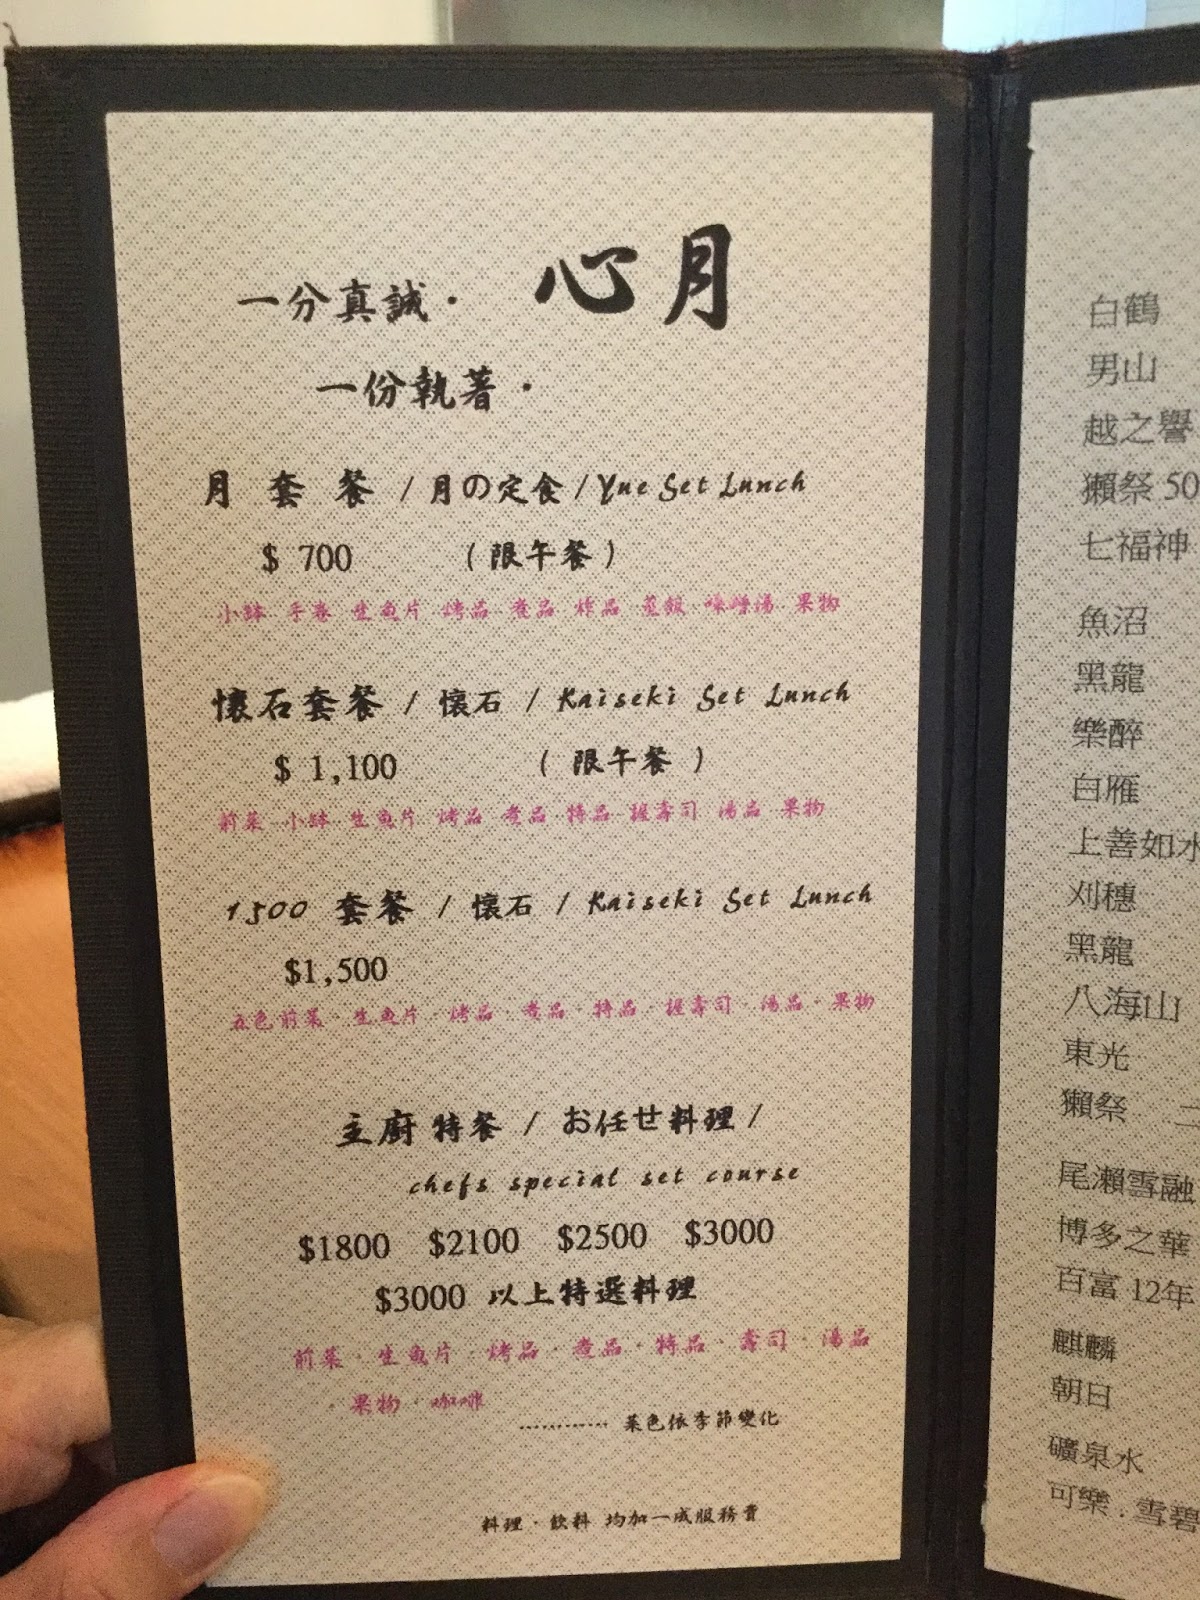 心月
一分真誠·
一份執著·
月套餐 / 月の定食 / Yue Set Lunch
$ 700 (限午餐)
小缽 手卷 生魚片 烤品 煮品 炸品 蒸飯 味噌湯 果物
懷石套餐 / 懷石 / Kaiseki Set Lunch
$ 1,100 ( 限午餐 )
前菜 小缽 生魚片 烤品 煮品 特品 握壽司 湯品 果物
1500 套餐 / 懷石 / Kaiseki Set Lunch
$1,500
五色前菜·生魚片·烤品·煮品·特品·握壽司·湯品·果物
主廚特餐 / お任せ料理 /
chefs special set course
$1800 $2100 $2500 $3000
$3000 以上特選料理
前菜·生魚片·烤品·煮品·特品·壽司·湯品
·果物·咖啡
············ 菜色依季節變化
料理·飲料 均加一成服務費
白鶴
男山
越之譽
獺祭 50
七福神
魚沼
黑龍
樂醉
白雁
上善如水
刈穗
黑龍
八海山
東光
獺祭 二
尾瀨雪融
博多之華
百富 12年
麒麟
朝日
礦泉水
可樂．雪碧